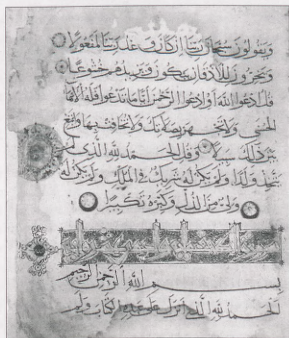 ويقولون سبحان ربنا إن كان وعد ربنا لمفعولا
ويخرون للأذقان يبكون ويزيدهم خشوعا
قل ادعوا الله أو ادعوا الرحمن أيا ما تدعوا فله الأسماء
الحسنى ولا تجهر بصلاتك ولا تخافت بها وابتغ
بين ذلك سبيلا وقل الحمد لله الذي لم
يتخذ ولدا ولم يكن له شريك في الملك ولم يكن له
ولي من الذل وكبره تكبيرا
بسم الله الرحمن الرحيم
الحمد لله الذي أنزل على عبده الكتاب ولم